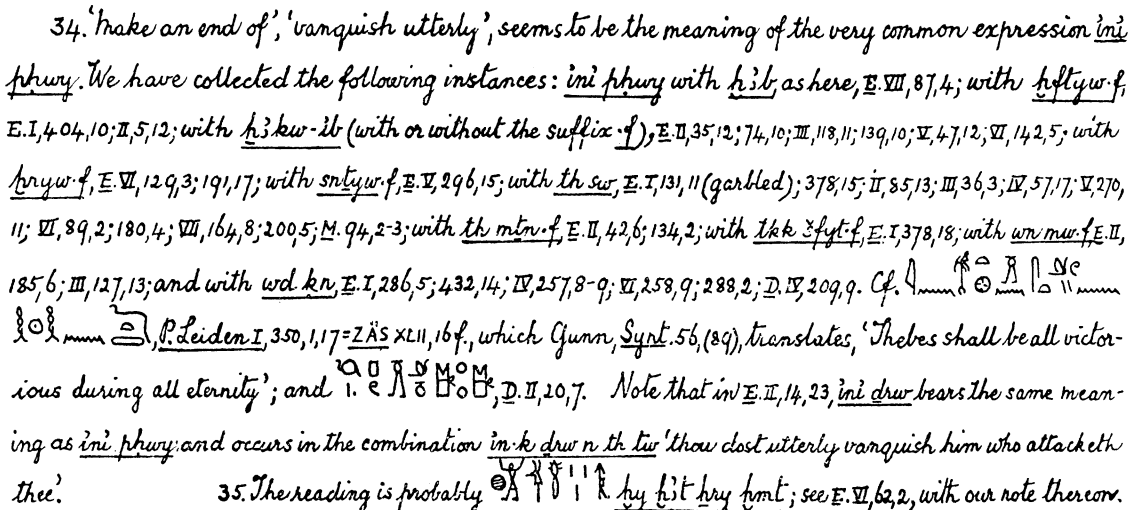 34. 'Make an end of', 'vanquish utterly', seems to be the meaning of the very common expression ỉnỉ
pḥwy. We have collected the following instances: ỉnỉ pḥwy with ḫꜣb, as here, E. VII, 87,4; with ḫftyw·f,
E. I, 404,10; II, 5,12; with ḫꜣkw-ỉb (with or without the suffix ·f), E. II, 35,12; 74,10; III, 118,11; 139,10; V, 47,12; VI, 142,5; with
ḫryw·f, E. VI, 129,3; 191,17; with sntyw·f, E. V, 296,15; with th sw, E. I, 131, 11 (garbled); 378,15; II, 85,13; III, 36,3; IV, 57,17; V, 270,
11; VI, 89,2; 180,4; VII, 164,8; 200,5; M. 94,2-3; with th mtn·f, E. II, 42,6; 134,2; with tkk šfyt·f, E. I, 378,18; with wn mw·f E. II,
185,6; III, 127,13; and with wd ḳn, E. I, 286,5; 432,14; IV, 257,8-9; VI, 258,9; 288,2; D. IV, 209,9. Cf.
, P. Leiden I, 350, 1,17 = ZÄS XLII, 16 f., which Gunn, Synt. 56, (89), translates, 'Thebes shall be all victor-
ious during all eternity'; and , D. II, 20,7. Note that in E. II, 14,23, ỉnỉ drw bears the same mean-
ing as ỉnỉ pḥwy and occurs in the combination ỉn·k drw n th tw 'thou dost utterly vanquish him who attacketh
thee'. 35. The reading is probably ḥy ḥꜣt ḥry ḥmt; see E. VI, 62,2, with our note thereon.